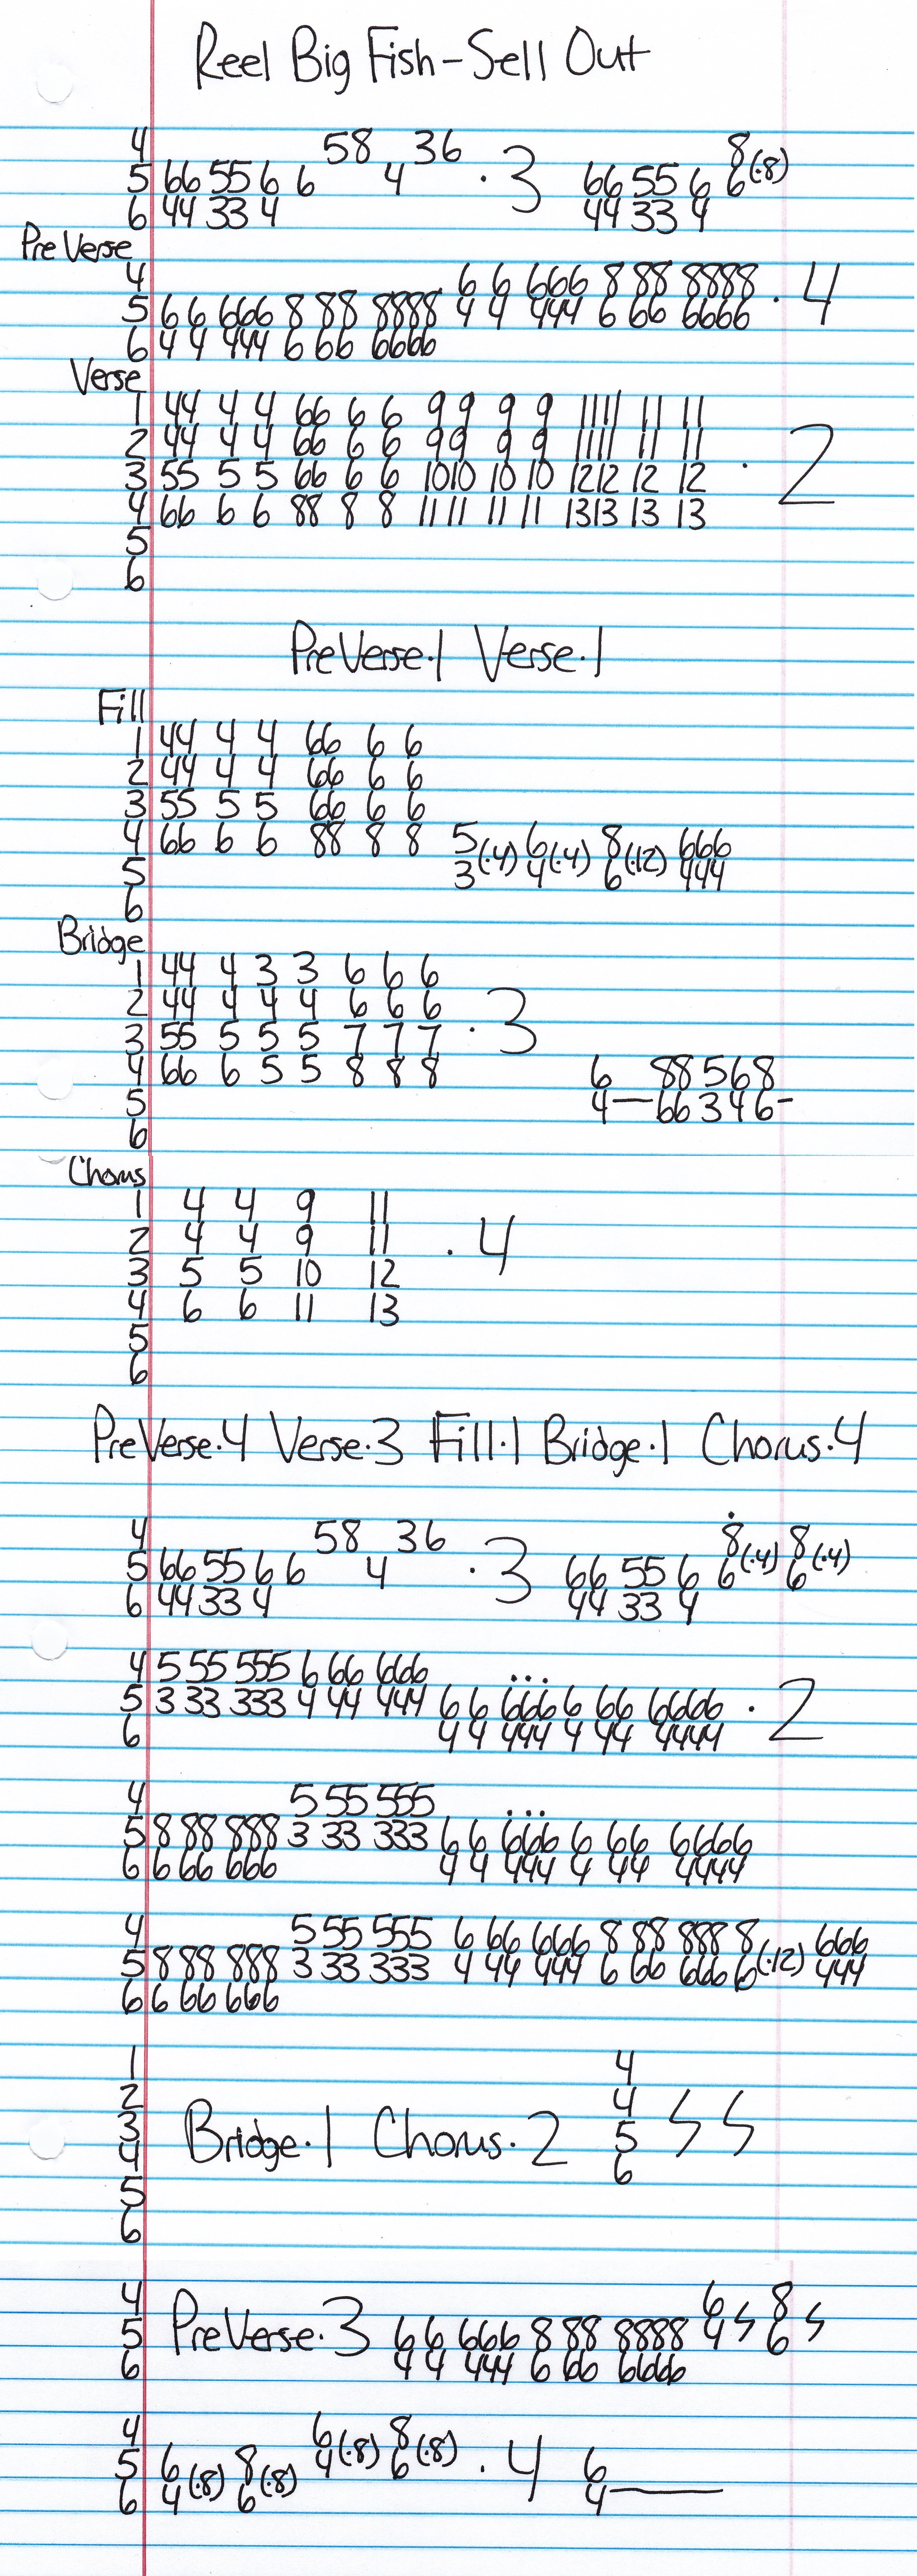 Reel Big Fish-Sell Out
4 58 36 8
5 66 55 6 6 4 · 3 66 55 6 6(·8)
6 44 33 4 44 33 4
Pre Verse
4 6 6 666 8 88 8888
5 6 6 666 8 88 8888 4 4 444 6 66 6666 · 4
6 4 4 444 6 66 6666
Verse
1 44 4 4 66 6 6 9 9 9 9 1111 11 11
2 44 4 4 66 6 6 99 9 9 1111 11 11
3 55 5 5 66 6 6 1010 10 10 1212 12 12 · 2
4 66 6 6 88 8 8 1111 11 11 1313 13 13
5
6
PreVerse·1 Verse·1
Fill
1 44 4 4 66 6 6
2 44 4 4 66 6 6
3 55 5 5 66 6 6
4 66 6 6 88 8 8 5(·4) 6(·4) 8(·12) 666
5 3 4 6 444
6
Bridge
1 44 4 3 3 6 6 6
2 44 4 4 4 6 6 6
3 55 5 5 5 7 7 7 · 3
4 66 6 5 5 8 8 8 6 88 568
5 4—66 3 4 6-
6
Chorus
1 4 4 9 11
2 4 4 9 11 · 4
3 5 5 10 12
4 6 6 11 13
5
6
PreVerse·4 Verse·3 Fill·1 Bridge·1 Chorus·4
4 58 36 8 8
5 66 55 6 6 4 · 3 66 55 6 6(·4) 6(·4)
6 44 33 4 44 33 4
4 5 55 555 6 66 666 ...
5 3 33 333 4 44 444 6 6 666 6 66 6666 · 2
6 4 4 444 4 44 4444
4 5 55 555 ...
5 8 88 888 3 33 333 6 6 666 6 66 6666
6 6 66 666 4 4 444 4 44 4444
4 5 55 555 6 66 666 8 88 888 8 666
5 8 88 888 3 33 333 4 44 444 6 66 666 6(·12) 444
6 6 66 666
1 4
2 4
3 Bridge·1 Chorus·2 5
4 6
5
6
4 6 8
5 PreVerse·3 6 6 666 8 88 8888 4 6
6 4 4 444 6 66 6666
4 6 8
5 6 8 4(·8) 6(·8) · 4 6
6 4(·8) 6(·8) 4—